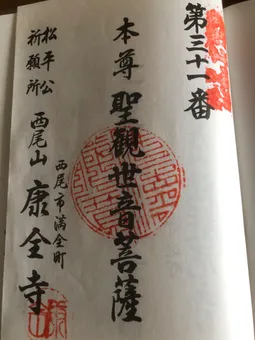 第三十一番
本尊 聖觀世音菩薩
西尾市満全町
西尾山 康全寺
松平公
祈願所